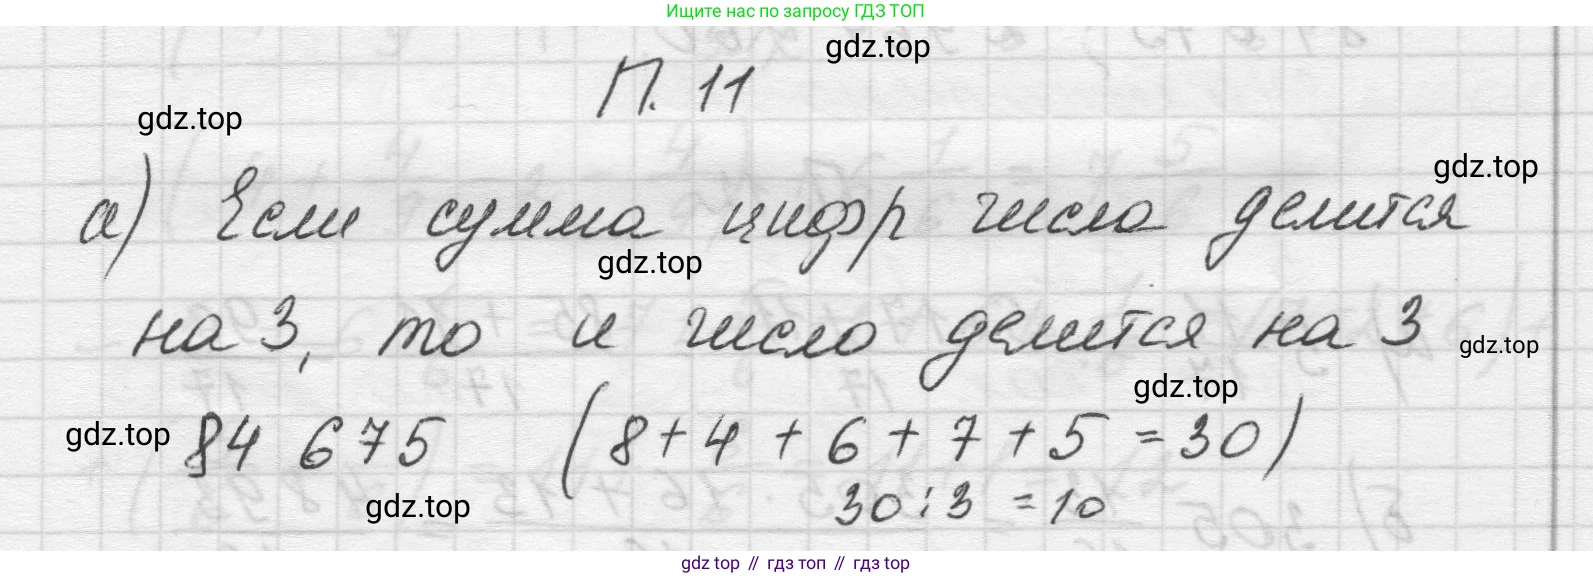 Ищите нас по запросу ГДЗ ТОП
gdz.top
П. 11
gdz.top
gdz.top
а) Если сумма цифр числа делится
gdz.top
на 3, то и число делится на 3
gdz.top
gdz.top
gdz.top
84 675 (8+4+6+7+5=30)
gdz.top
30:3=10
gdz top // гдз топ // гдз top